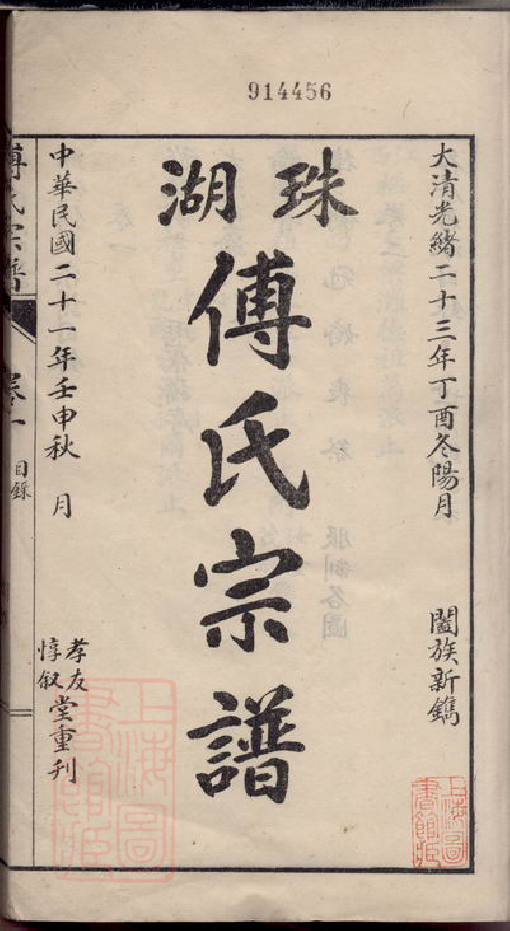 914456
大清光緒二十三年丁酉冬陽月 闔族新鐫
珠湖
傅氏宗譜
中華民國二十一年壬申秋月
孝友
惇敘
堂重刊
傅氏宗譜 卷一 目錄
上海圖書館藏
上海圖書館藏